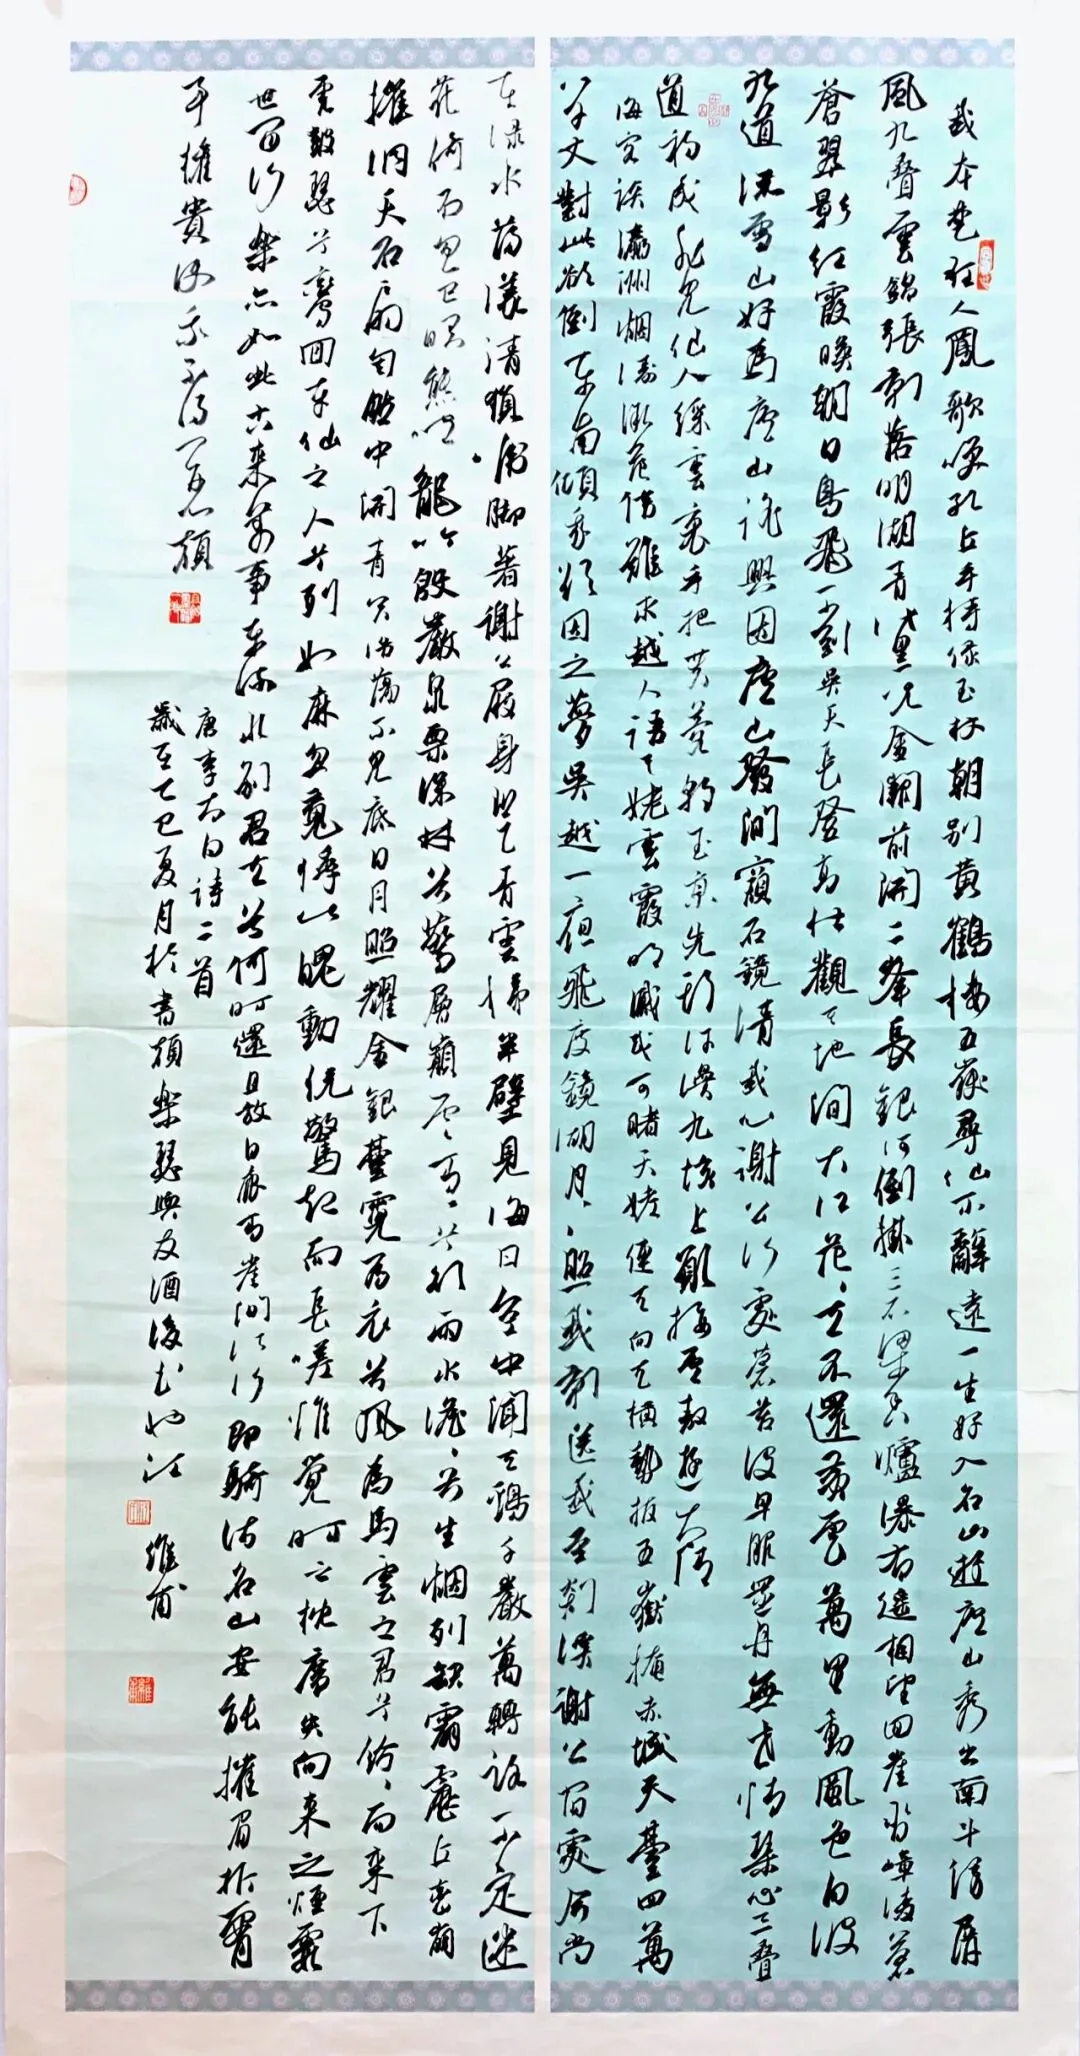 我本楚狂人鳳歌笑孔丘手持绿玉杖朝别黄鶴楼五嶽尋仙不辭遠一生好入名山遊庐山秀出南斗傍屏
風九叠雲錦張影落明湖青黛光金闕前開二峯長銀河倒掛三石梁香爐瀑布遥相望回崖沓嶂凌蒼
蒼翠影红霞暎朝日鳥飛不到吳天長登高壮觀天地間大江茫茫去不還黄雲萬里動風色白波
九道流雪山好為庐山謡興因庐山發閒窺石鏡清我心謝公行處蒼苔没早服還丹無世情琴心三叠
道初成 見仙人綵雲裏手把芙蓉朝玉京先期汗漫九垓上願接盧敖遊太清
海客谈瀛洲烟濤微茫信難求越人語天姥雲霞明滅或可睹天姥連天向天横勢拔五嶽掩赤城天臺四萬
八千丈對此欲倒東南傾我欲因之夢吳越一夜飛度鏡湖月、照我影送我至剡溪謝公宿處今尚
在渌水荡漾清猿啼脚著謝公屐身登青雲梯半壁見海日空中聞天鷄千巖萬轉路不定迷
花倚石忽已暝熊咆龍吟殷巖泉栗深林兮驚層巔雲青、兮欲雨水澹、兮生烟列缺霹靂丘巒崩
摧洞天石扇訇然中開青冥浩蕩不見底日月照耀金銀臺霓為衣兮風為馬雲之君兮紛、而來下
虎鼓瑟兮鸞回車仙之人兮列如麻忽魂悸以魄動恍驚起而長嗟惟覺時之枕席失向來之煙霞
世间行樂亦如此古來萬事東流水别君去兮何時還且放白鹿青崖間須行即騎访名山安能摧眉折腰
事權貴使我不得開心顏
唐李太白詩二首
歲在乙巳夏月於書顏樂瑟與友酒後书
維甫